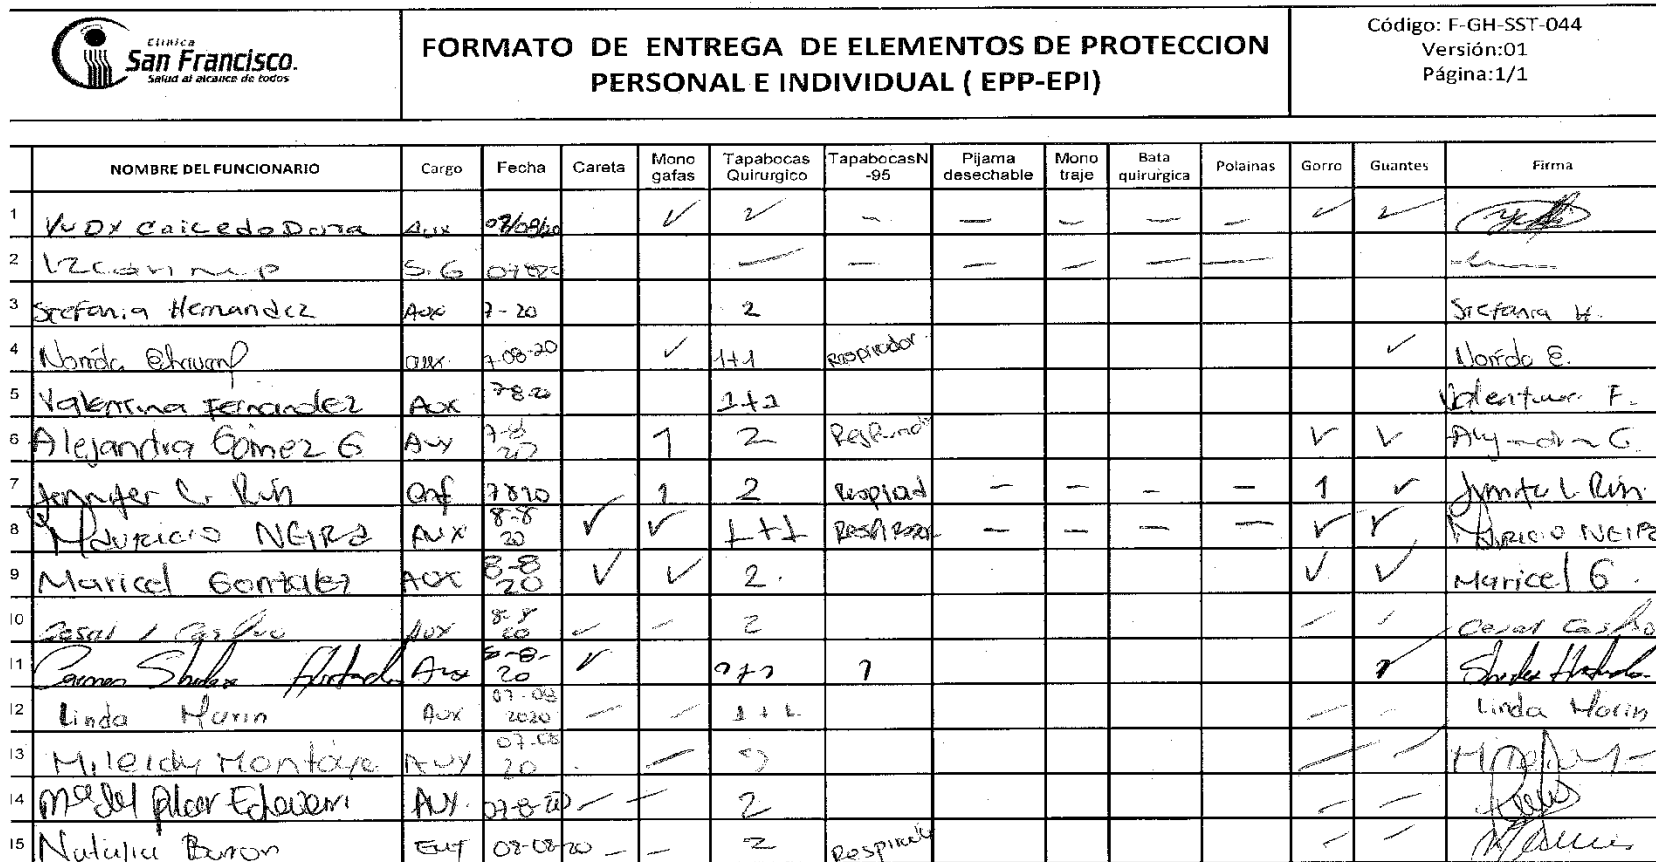 Clínica
San Francisco.
Salud al alcance de todos
FORMATO DE ENTREGA DE ELEMENTOS DE PROTECCION
PERSONAL E INDIVIDUAL ( EPP-EPI)
Código: F-GH-SST-044
Versión:01
Página:1/1
NOMBRE DEL FUNCIONARIO Cargo Fecha Careta Mono gafas Tapabocas Quirurgico TapabocasN-95 Pijama desechable Mono traje Bata quirurgica Polainas Gorro Guantes Firma
1 Yudy Caicedo Aux ✓ ✓ — — — — — ✓ ✓
2 S.G — — — — — —
3 Stefania Hernandez Aux 7-20 2 Stefania H.
4 aux. 7-08-20 ✓ 1+1 Respirador ✓
5 Valentina Fernandez Aux 7-8-20 1+1 Valentina F.
6 Alejandra Gómez G Aux 7-8 20 1 2 ✓ ✓
7 Jennifer Enf 7820 1 2 — — — — 1 ✓
8 Mauricio NEIRA AUX 8-8 20 ✓ ✓ 1+1 — — — — ✓ ✓ Mauricio NEIRA
9 Maricel Gonzalez Aux 8-8 20 ✓ ✓ 2. ✓ ✓ Maricel G.
10 Cesar Castro Aux 8-8 20 — — 2 — — Cesar Castro
11 Carmen Aux 20 ✓ 1+1 1
12 Linda Marin Aux 07-08 2020 — — 1+1 — — Linda Marin
13 Mileidy Montoya Aux 07-08 20 — 2 — —
14 Ma del Pilar Echeverri Aux. 07-8-20 — — 2 — —
15 Natalia 08-08-20 — — 2 — —